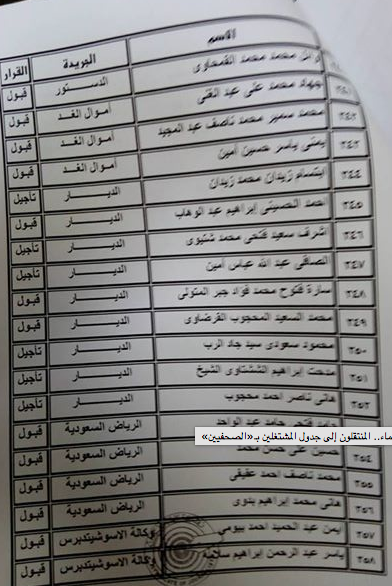 الاسم الجريدة القرار
محمد محمد القمحاوى الدستور قبول
جهاد محمد على عبد الغنى أموال الغد قبول
٣٤٢ محمد سمير محمد ناصف عبد المجيد أموال الغد قبول
٣٤٣ يمنى ياسر حسين أمين أموال الغد قبول
٣٤٤ ابتسام زيدان محمد زيدان الديار تأجيل
٣٤٥ احمد الحسينى إبراهيم عبد الوهاب الديار قبول
٣٤٦ اشرف سعيد فتحى محمد شتيوى الديار تأجيل
٣٤٧ الصافى عبد الله عباس أمين الديار تأجيل
٣٤٨ سارة فتوح محمد فواد جبر المتولى الديار قبول
٣٤٩ محمد السعيد المحجوب القرضاوى الديار قبول
٣٥٠ محمود سعودى سيد جاد الرب الديار تأجيل
٣٥١ مدحت إبراهيم الششتاوى الشيخ الديار تأجيل
٣٥٢ هانى ناصر احمد محجوب الديار تأجيل
فتحى حامد عبد الواحد الرياض السعودية قبول
ماء.. المنتقلون إلى جدول المشتغلين بـ«الصحفيين»
٣٥٤ حسين على حسن محمد الرياض السعودية قبول
٣٥٥ محمد ناصف احمد عفيفى الرياض السعودية قبول
٣٥٦ هانى محمد إبراهيم بدوى الرياض السعودية قبول
٣٥٧ أيمن عبد الحميد احمد بيومى وكالة الاسوشيتدبرس قبول
٣٥٨ ياسر عبد الرحمن إبراهيم سلامة وكالة الاسوشيتدبرس قبول